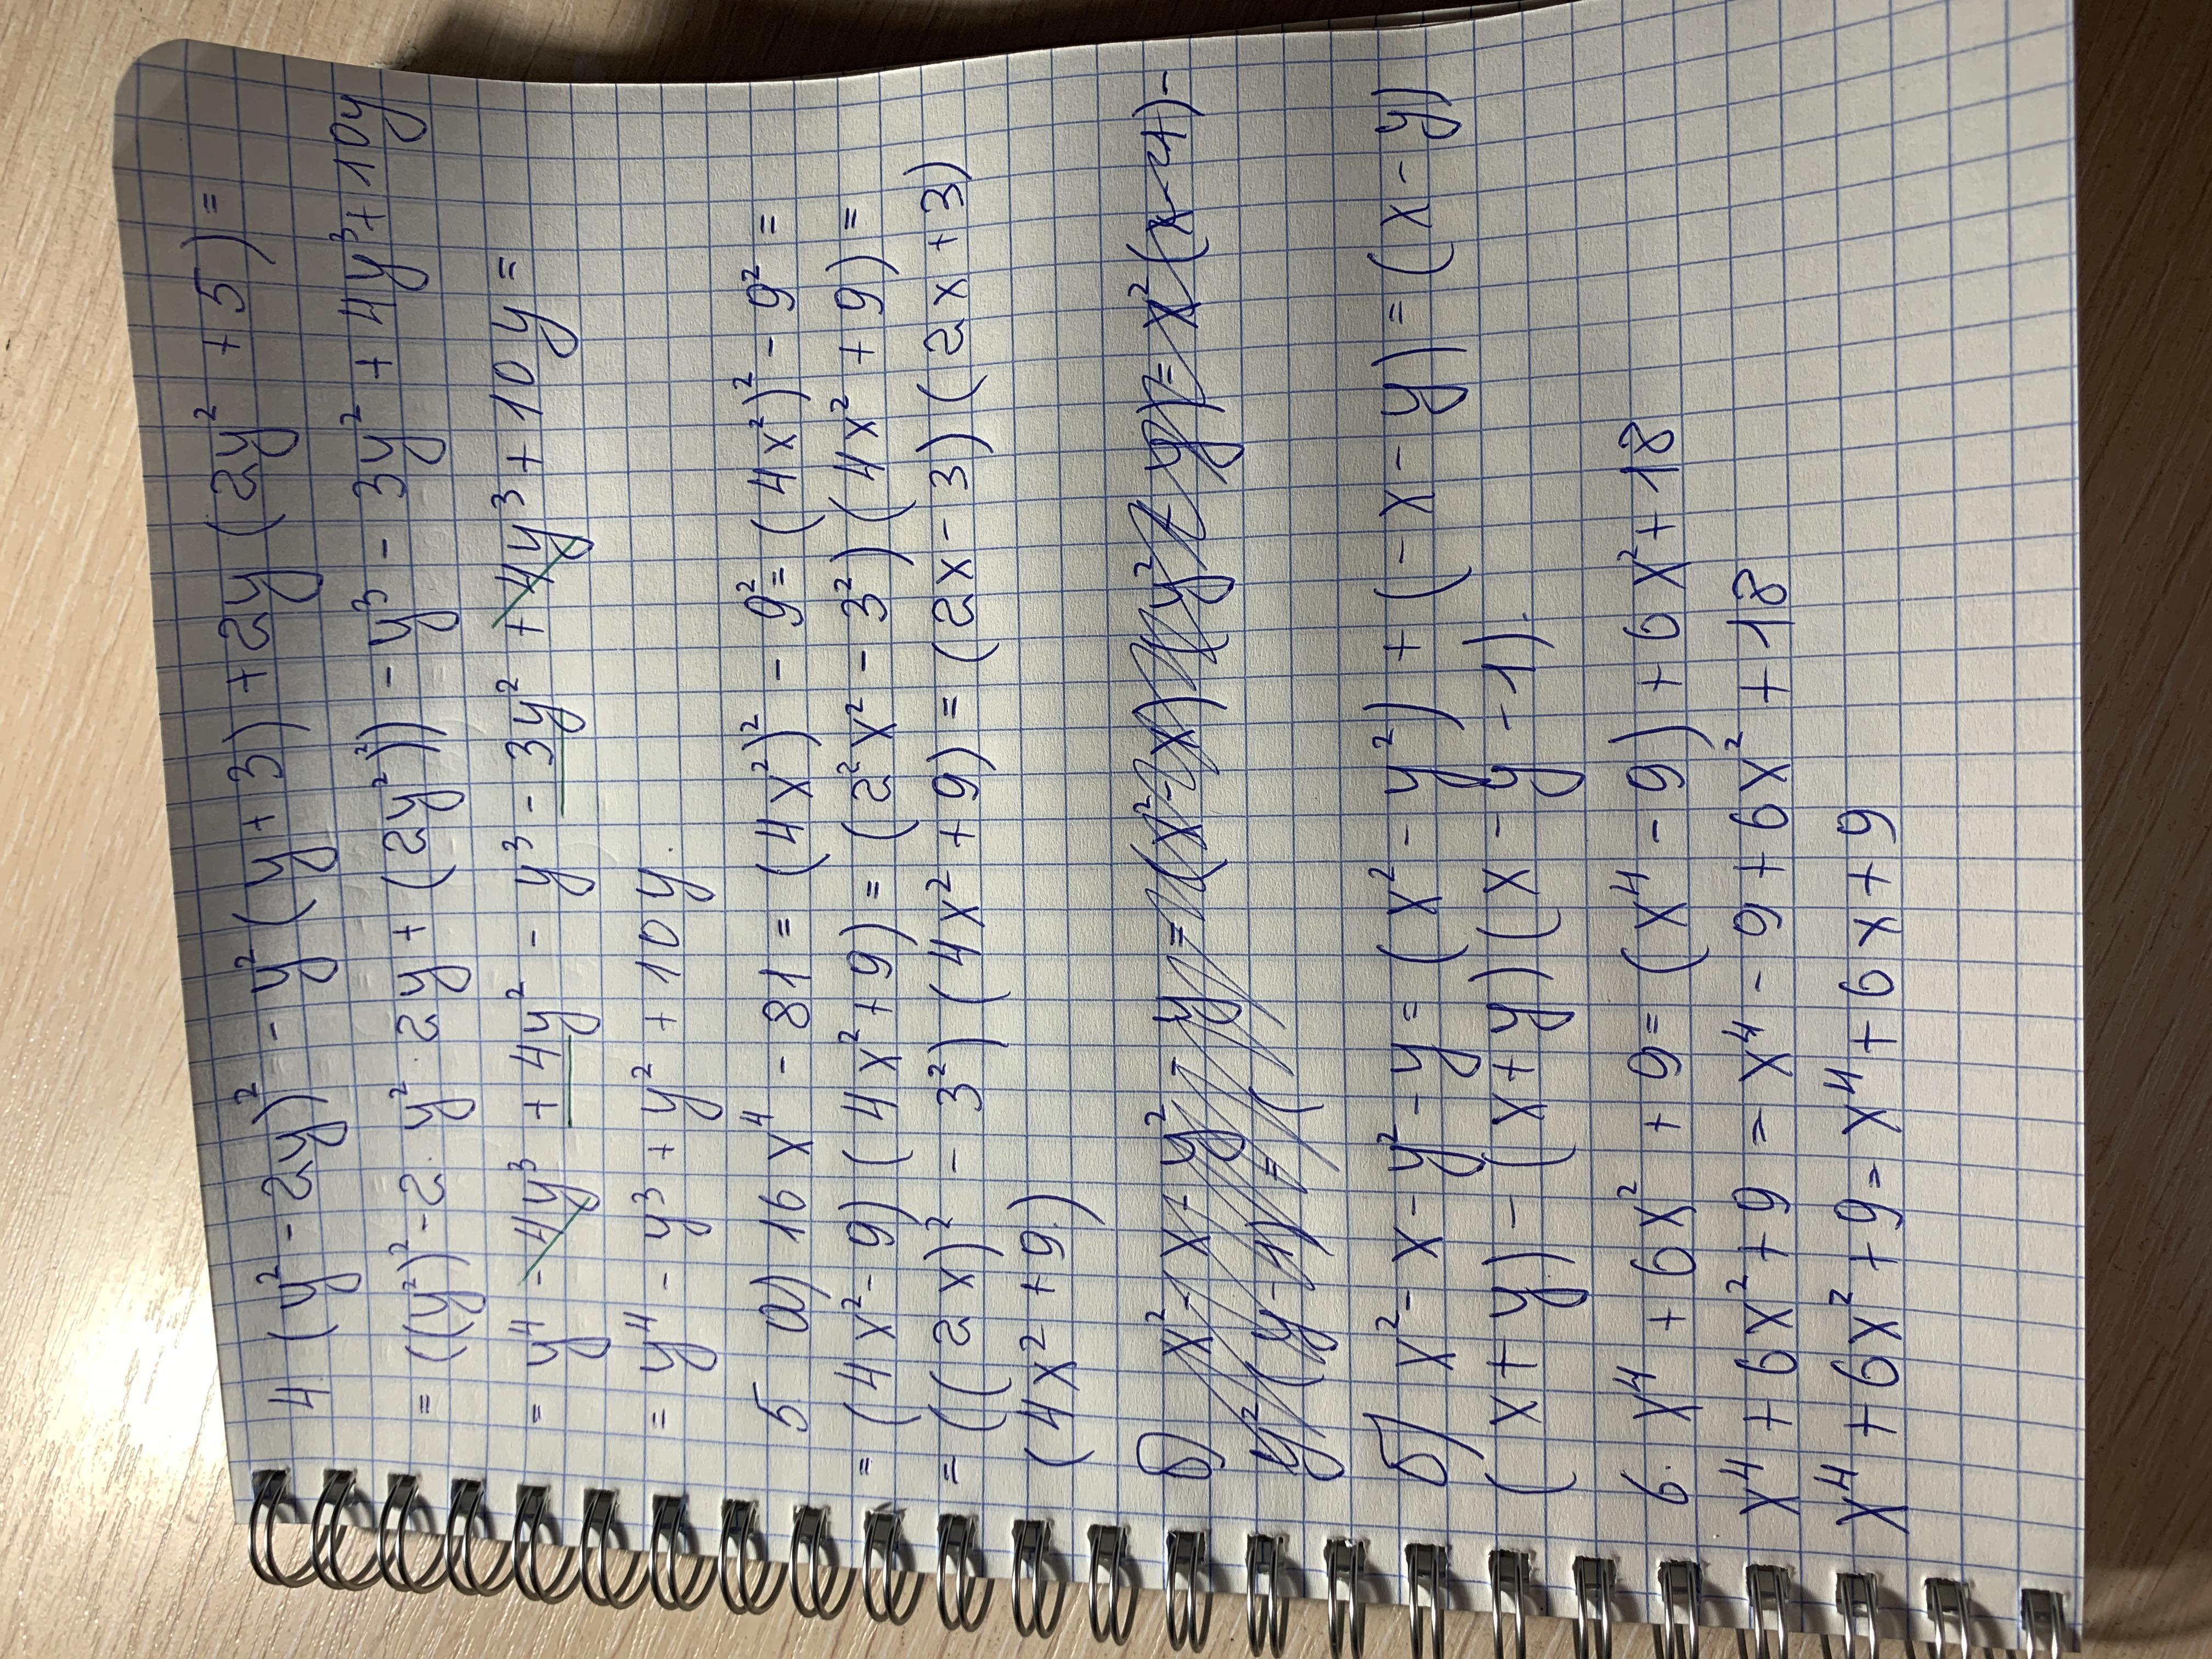 4 (y² - 2y)² - y² (y + 3) + 2y (2y² + 5) =
= ((y²)² - 2 · y² · 2y + (2y²)) - y³ - 3y² + 4y³ + 10y
= y⁴ - 4y³ + 4y² - y³ - 3y² + 4y³ + 10y =
= y⁴ - y³ + y² + 10y.
5 а) 16x⁴ - 81 = (4x²)² - 9² = (4x²)² - 9² =
= (4x² - 9) (4x² + 9) = (2²x² - 3²) (4x² + 9) =
= ((2x)² - 3²) (4x² + 9) = (2x - 3) (2x + 3)
(4x² + 9)
б) x² - x - y² - y = (x² - x) = x² (x - 4) -
y² (y - 4) = (
б) x² - x - y² - y = (x² - y²) + (-x - y) = (x - y)
(x + y) - (x + y) (x - y - 1).
6. x⁴ + 6x² + 9 = (x⁴ - 9) + 6x² + 18
x⁴ + 6x² + 9 = x⁴ - 9 + 6x² + 18
x⁴ + 6x² + 9 = x⁴ + 6x + 9